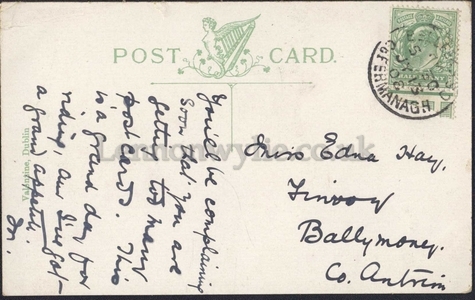 POST CARD.
You'll be complaining
soon that you are
getting too many
post cards. This
is a grand day for
riding, and I've got
a grand appetite.
Valentine, Dublin
Miss Edna Hay,
Finvoy
Ballymoney.
Co. Antrim
FERMANAGH
Lennonwylie.co.uk